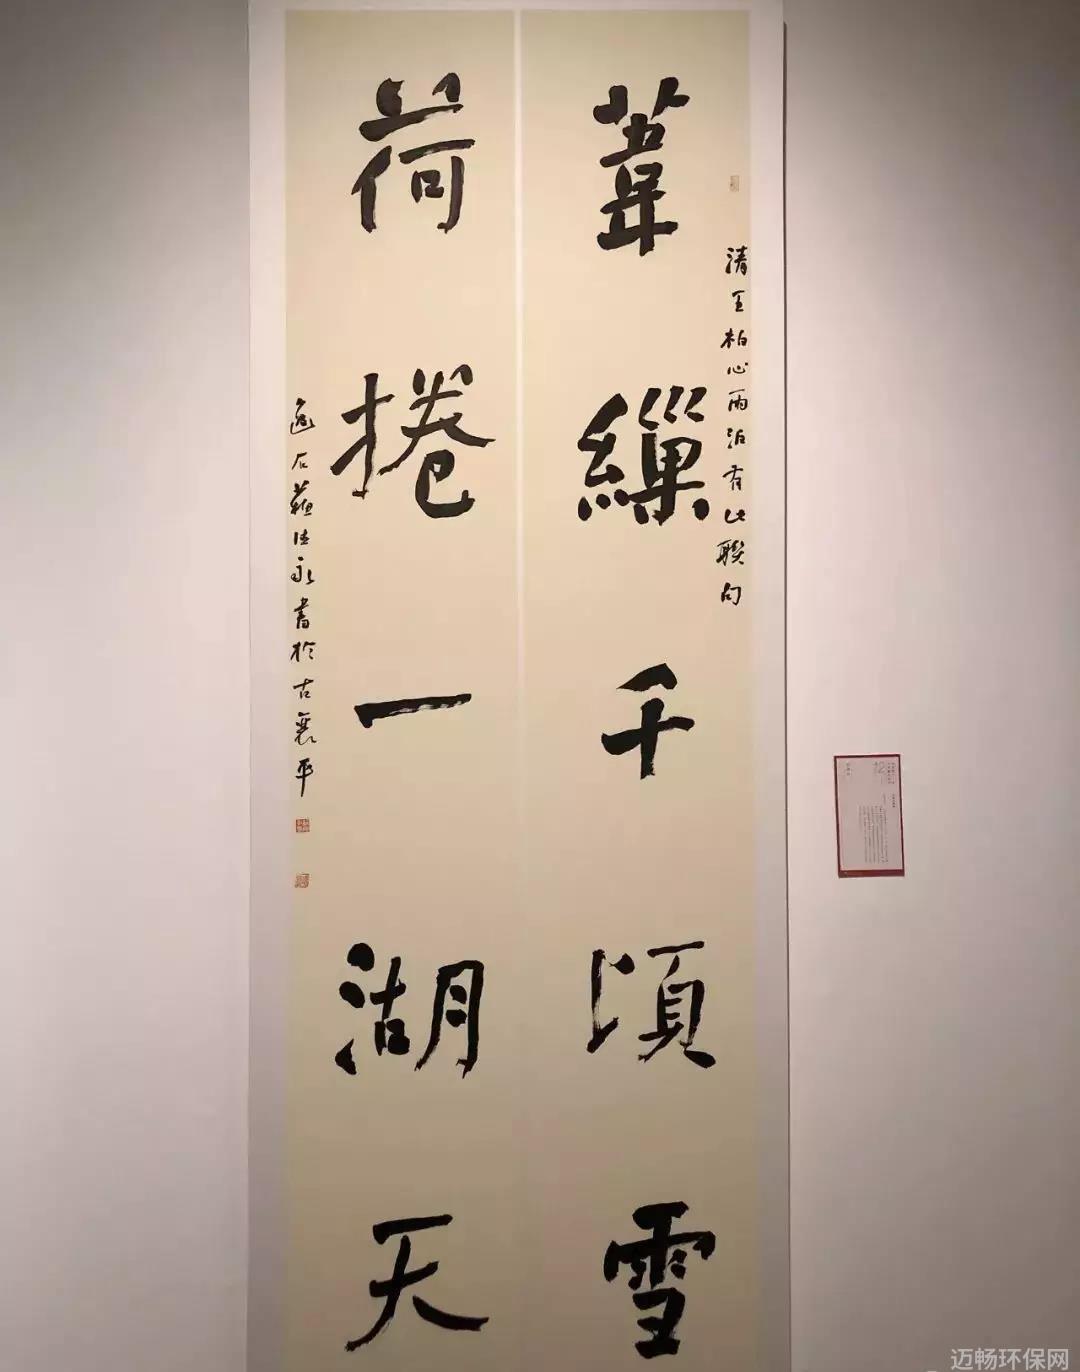 葦繅千頃雪
清王柏心雨泊有此聯句
荷捲一湖天
逸石蘇德永書於古襄平
迈畅环保网